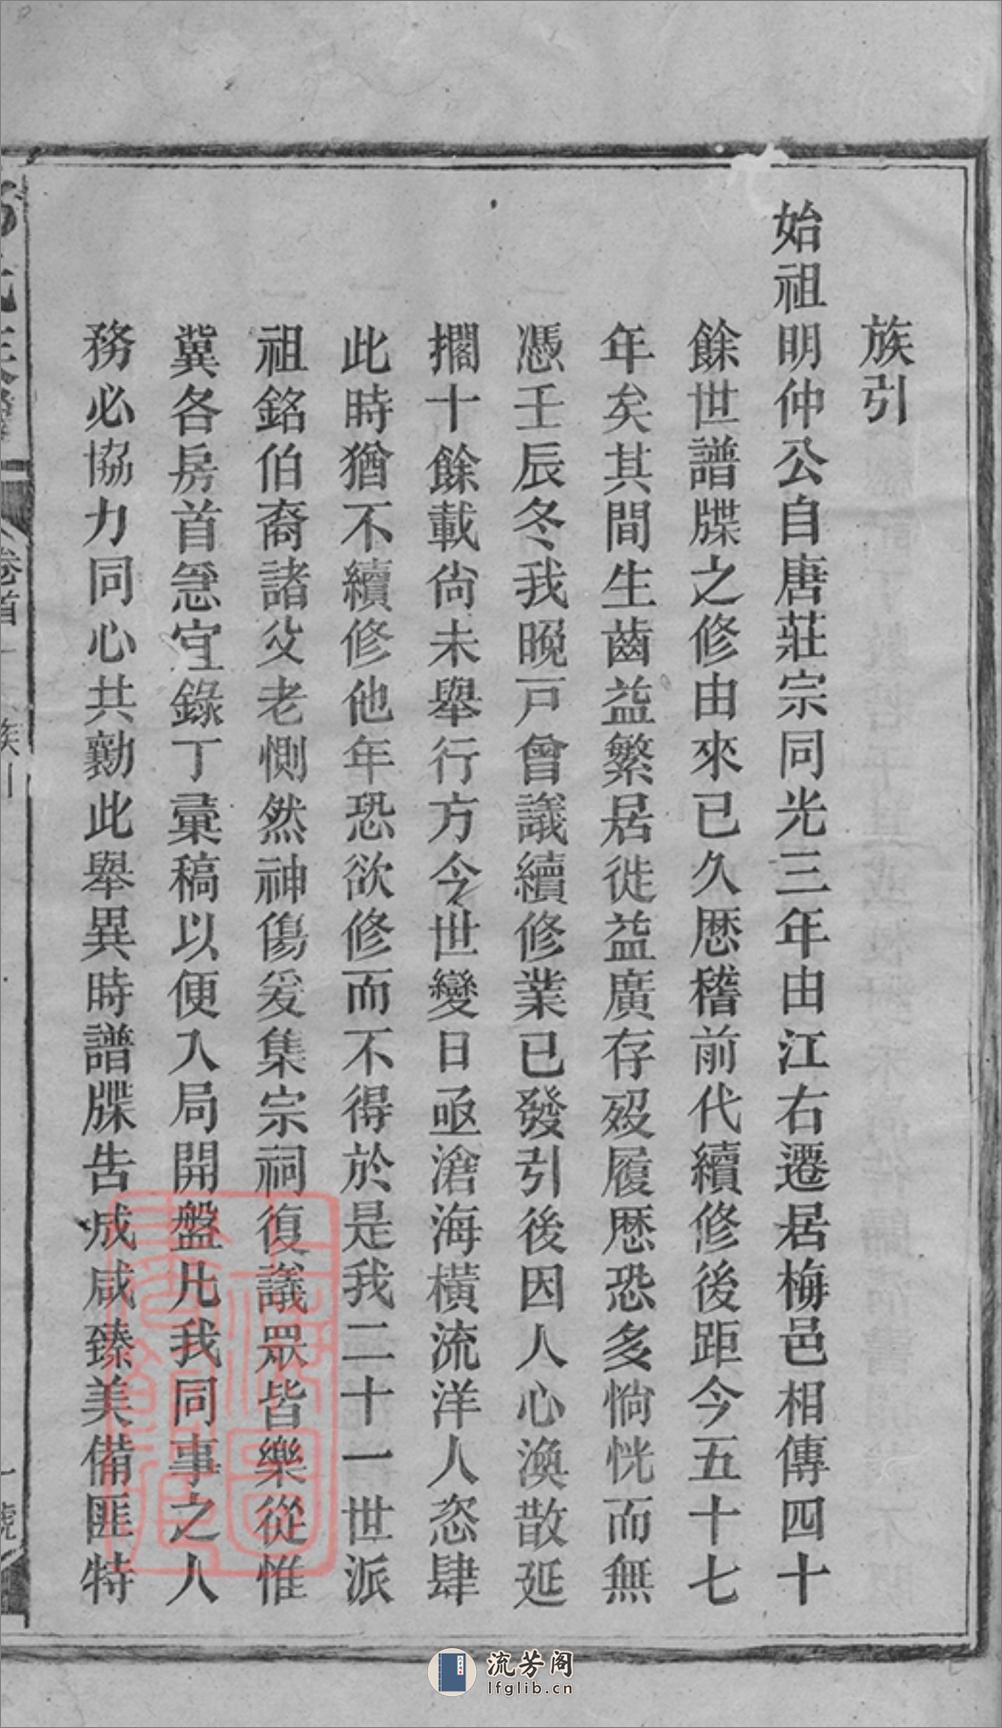 族引
始祖明仲公自唐莊宗同光三年由江右遷居梅邑相傳四十
餘世譜牒之修由來已久厯稽前代續修後距今五十七
年矣其間生齒益繁居徙益廣存殁履厯恐多惝恍而無
憑壬辰冬我晚戸曾議續修業已發引後因人心渙散延
擱十餘載尙未舉行方今世變日亟滄海橫流洋人恣肆
此時猶不續修他年恐欲修而不得於是我二十一世派
祖銘伯裔諸父老惻然神傷爰集宗祠復議眾皆樂從惟
冀各房首急宜錄丁彙稿以便入局開盤凡我同事之人
務必協力同心共勷此舉異時譜牒告成咸臻美備匪特
卷首
族引
一號
上海圖書館藏
流芳阁
lfglib.cn